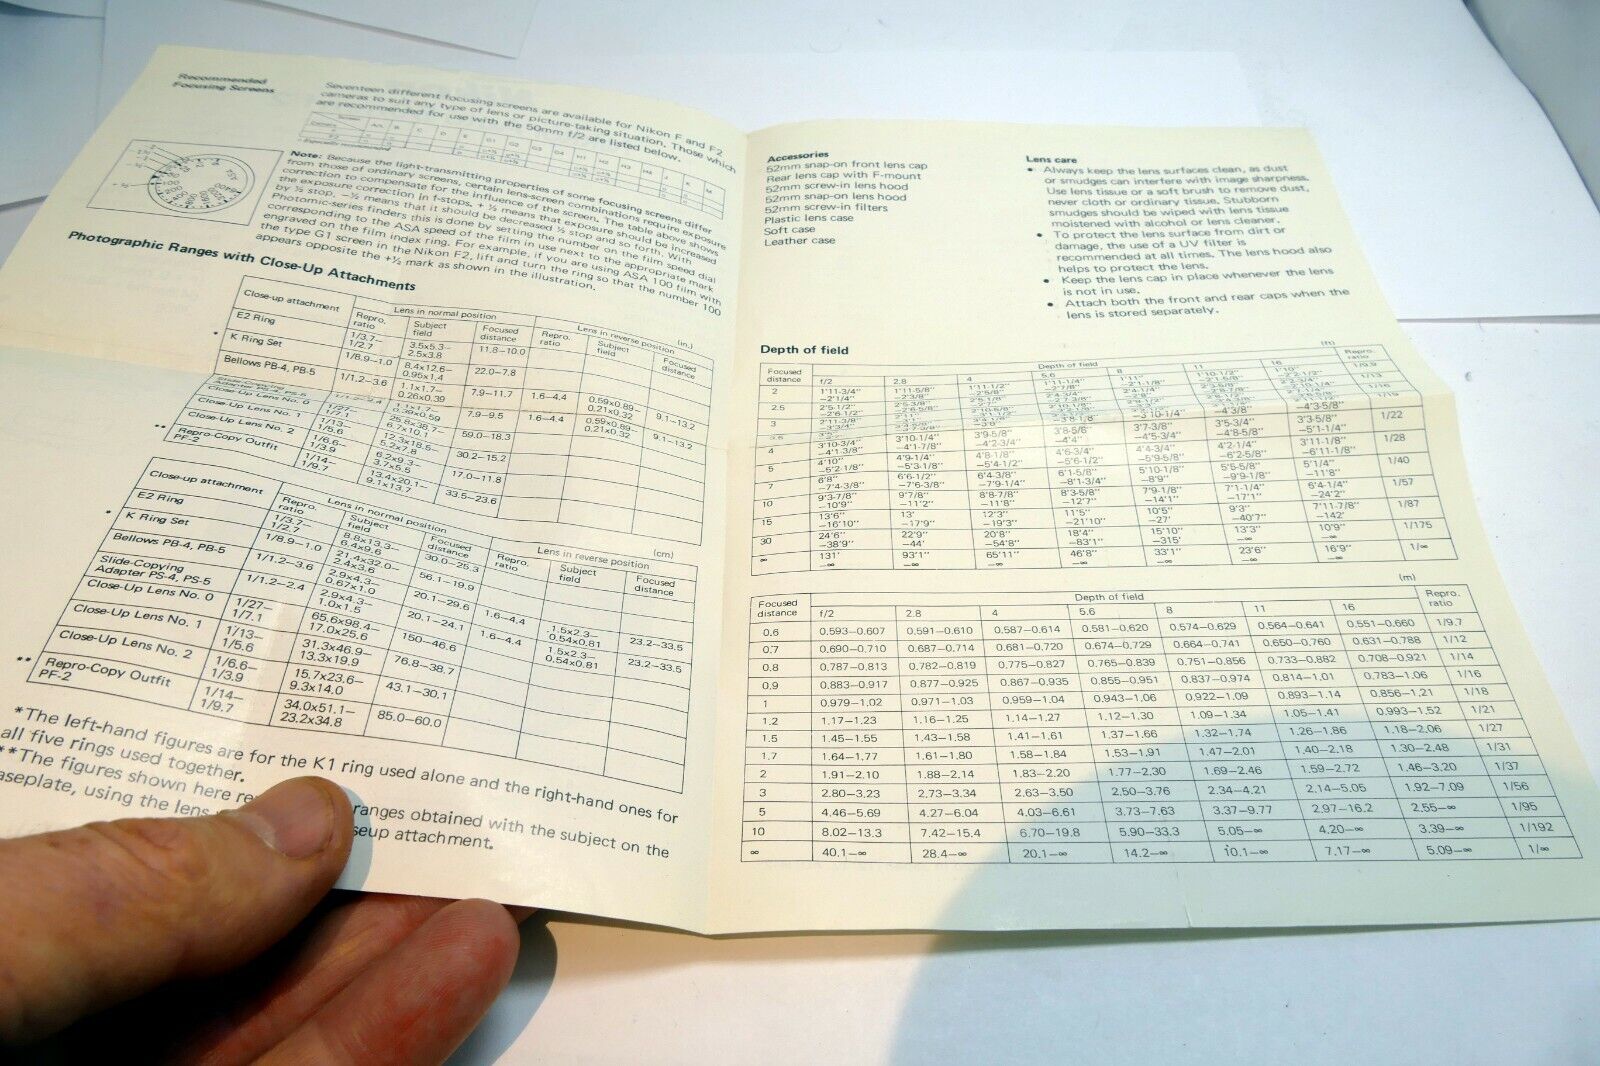 Recommended
Focusing Screens
Seventeen different focusing screens are available for Nikon F and F2
cameras to suit any type of lens or picture-taking situation. Those which
are recommended for use with the 50mm f/2 are listed below.
Note: Because the light-transmitting properties of some focusing screens differ
from those of ordinary screens, certain lens-screen combinations require exposure
correction to compensate for the influence of the screen. The table above shows
the exposure correction in f-stops. + ½ means that exposure should be increased
by ½ stop, −½ means that it should be decreased ½ stop and so forth. With
Photomic-series finders this is done by setting the number on the film speed dial
corresponding to the ASA speed of the film in use next to the appropriate mark
engraved on the film index ring. For example, if you are using ASA 100 film with
the type G1 screen in the Nikon F2, lift and turn the ring so that the number 100
appears opposite the +½ mark as shown in the illustration.
Photographic Ranges with Close-Up Attachments
(in.)
Close-up attachment Lens in normal position Lens in reverse position
Repro. ratio Subject field Focused distance Repro. ratio Subject field Focused distance
E2 Ring 1/3.7–1/2.7 3.5x5.3–2.5x3.8 11.8–10.0
* K Ring Set 1/8.9–1.0 8.4x12.6–0.95x1.4 22.0–7.8
Bellows PB-4, PB-5 1/1.2–3.6 1.1x1.7–0.26x0.39 7.9–11.7 1.6–4.4 0.59x0.89–0.21x0.32 9.1–13.2
Slide-Copying Adapter PS-4, PS-5 7.9–9.5 1.6–4.4 0.59x0.89–0.21x0.32 9.1–13.2
Close-Up Lens No. 0 1/27–1/7.1 25.8x38.7–6.7x10.1 59.0–18.3
Close-Up Lens No. 1 1/13–1/5.6 12.3x18.5–5.2x7.8 30.2–15.2
Close-Up Lens No. 2 1/6.6–1/3.9 6.2x9.3–3.7x5.5 17.0–11.8
** Repro-Copy Outfit PF-2 1/14–1/9.7 13.4x20.1–9.1x13.7 33.5–23.6
(cm)
Close-up attachment Lens in normal position Lens in reverse position
Repro. ratio Subject field Focused distance Repro. ratio Subject field Focused distance
E2 Ring 1/3.7–1/2.7 8.8x13.3–6.4x9.6 30.0–25.3
* K Ring Set 1/8.9–1.0 21.4x32.0–2.4x3.6 56.1–19.9
Bellows PB-4, PB-5 1/1.2–3.6 2.9x4.3–0.67x1.0 20.1–29.6 1.6–4.4 1.5x2.3–0.54x0.81 23.2–33.5
Slide-Copying Adapter PS-4, PS-5 1/1.2–2.4 2.9x4.3–1.0x1.5 20.1–24.1 1.6–4.4 1.5x2.3–0.54x0.81 23.2–33.5
Close-Up Lens No. 0 1/27–1/7.1 65.6x98.4–17.0x25.6 150–46.6
Close-Up Lens No. 1 1/13–1/5.6 31.3x46.9–13.3x19.9 76.8–38.7
Close-Up Lens No. 2 1/6.6–1/3.9 15.7x23.6–9.3x14.0 43.1–30.1
** Repro-Copy Outfit PF-2 1/14–1/9.7 34.0x51.1–23.2x34.8 85.0–60.0
*The left-hand figures are for the K1 ring used alone and the right-hand ones for
all five rings used together.
**The figures shown here ranges obtained with the subject on the
baseplate, using the lens attachment.
Accessories
52mm snap-on front lens cap
Rear lens cap with F-mount
52mm screw-in lens hood
52mm snap-on lens hood
52mm screw-in filters
Plastic lens case
Soft case
Leather case
Lens care
• Always keep the lens surfaces clean, as dust
or smudges can interfere with image sharpness.
Use lens tissue or a soft brush to remove dust,
never cloth or ordinary tissue. Stubborn
smudges should be wiped with lens tissue
moistened with alcohol or lens cleaner.
• To protect the lens surface from dirt or
damage, the use of a UV filter is
recommended at all times. The lens hood also
helps to protect the lens.
• Keep the lens cap in place whenever the lens
is not in use.
• Attach both the front and rear caps when the
lens is stored separately.
Depth of field
(ft)
Focused distance Depth of field Repro. ratio
f/2 2.8 4 5.6 8 11 16
4 3'10-3/4"–4'1-3/8" 3'10-1/4"–4'2-3/4" 3'9-5/8" 3'8-5/8"–4'4" 3'7-3/8"–4'5-3/4" 3'5-3/4"–4'8-5/8" 3'3-5/8"–5'1-1/4" 1/22
5 4'10"–5'2-1/8" 4'9-1/4"–5'3-1/8" 4'8-1/8"–5'4-1/2" 4'6-3/4"–5'6-1/2" 4'4-3/4"–5'9-5/8" 4'2-1/4"–6'2-5/8" 3'11-1/8"–6'11-1/8" 1/28
7 6'8"–7'4-3/8" 6'6-1/2"–7'6-3/8" 6'4-3/8"–7'9-1/4" 6'1-5/8"–8'1-3/4" 5'10-1/8"–8'9" 5'5-5/8"–9'9-1/8" 5'1/4"–11'8" 1/40
10 9'3-7/8"–10'9" 9'7/8"–11'2" 8'8-7/8"–11'8" 8'3-5/8"–12'7" 7'9-1/8"–14'1" 7'1-1/4"–17'1" 6'4-1/4"–24'2" 1/57
15 13'6"–16'10" 13'–17'9" 12'3"–19'3" 11'5"–21'10" 10'5"–27' 9'3"–40'7" 7'11-7/8"–142' 1/87
30 24'6"–38'9" 22'9"–44' 20'8"–54'8" 18'4"–83'1" 15'10"–315' 13'3"–∞ 10'9"–∞ 1/175
∞ 131'–∞ 93'1"–∞ 65'11"–∞ 46'8"–∞ 33'1"–∞ 23'6"–∞ 16'9"–∞ 1/∞
(m)
Focused distance Depth of field Repro. ratio
f/2 2.8 4 5.6 8 11 16
0.6 0.593–0.607 0.591–0.610 0.587–0.614 0.581–0.620 0.574–0.629 0.564–0.641 0.551–0.660 1/9.7
0.7 0.690–0.710 0.687–0.714 0.681–0.720 0.674–0.729 0.664–0.741 0.650–0.760 0.631–0.788 1/12
0.8 0.787–0.813 0.782–0.819 0.775–0.827 0.765–0.839 0.751–0.856 0.733–0.882 0.708–0.921 1/14
0.9 0.883–0.917 0.877–0.925 0.867–0.935 0.855–0.951 0.837–0.974 0.814–1.01 0.783–1.06 1/16
1 0.979–1.02 0.971–1.03 0.959–1.04 0.943–1.06 0.922–1.09 0.893–1.14 0.856–1.21 1/18
1.2 1.17–1.23 1.16–1.25 1.14–1.27 1.12–1.30 1.09–1.34 1.05–1.41 0.993–1.52 1/21
1.5 1.45–1.55 1.43–1.58 1.41–1.61 1.37–1.66 1.32–1.74 1.26–1.86 1.18–2.06 1/27
1.7 1.64–1.77 1.61–1.80 1.58–1.84 1.53–1.91 1.47–2.01 1.40–2.18 1.30–2.48 1/31
2 1.91–2.10 1.88–2.14 1.83–2.20 1.77–2.30 1.69–2.46 1.59–2.72 1.46–3.20 1/37
3 2.80–3.23 2.73–3.34 2.63–3.50 2.50–3.76 2.34–4.21 2.14–5.05 1.92–7.09 1/56
5 4.46–5.69 4.27–6.04 4.03–6.61 3.73–7.63 3.37–9.77 2.97–16.2 2.55–∞ 1/95
10 8.02–13.3 7.42–15.4 6.70–19.8 5.90–33.3 5.05–∞ 4.20–∞ 3.39–∞ 1/192
∞ 40.1–∞ 28.4–∞ 20.1–∞ 14.2–∞ 10.1–∞ 7.17–∞ 5.09–∞ 1/∞